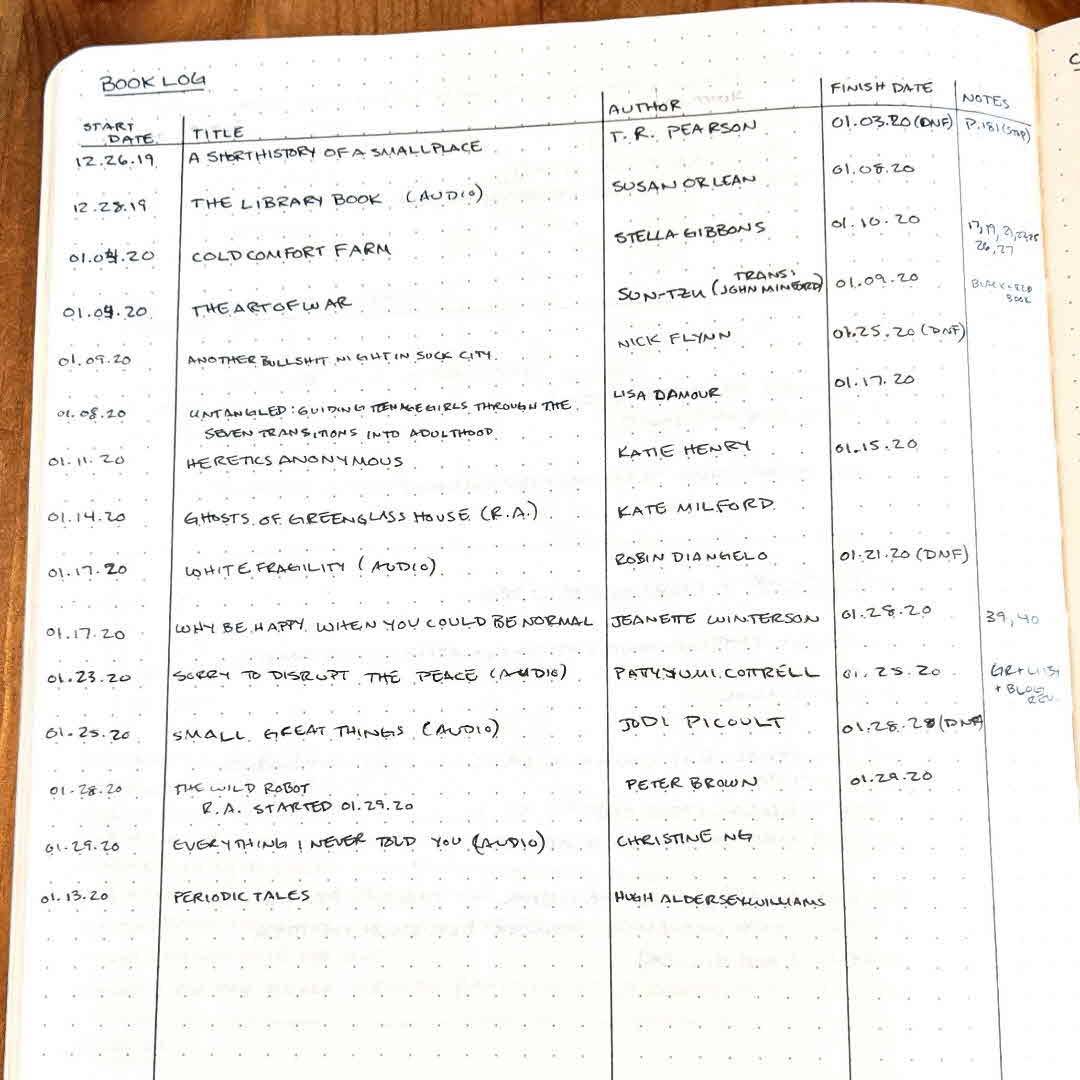 BOOK LOG
START DATE TITLE AUTHOR FINISH DATE NOTES
12.26.19 A SHORT HISTORY OF A SMALL PLACE T. R. PEARSON 01.03.20 (DNF) P.181 (STOP)
12.28.19 THE LIBRARY BOOK (AUDIO) SUSAN ORLEAN 01.08.20
01.04.20 COLD COMFORT FARM STELLA GIBBONS 01.10.20
26, 27
TRANS:
01.04.20 THE ART OF WAR SUN-TZU (JOHN MINFORD) 01.09.20 BLACK + RED
BOOK
01.09.20 ANOTHER BULLSHIT NIGHT IN SUCK CITY NICK FLYNN 01.25.20 (DNF)
01.08.20 UNTANGLED: GUIDING TEENAGE GIRLS THROUGH THE LISA DAMOUR 01.17.20
SEVEN TRANSITIONS INTO ADULTHOOD
01.11.20 HERETICS ANONYMOUS KATIE HENRY 01.15.20
01.14.20 GHOSTS OF GREENGLASS HOUSE (R.A.) KATE MILFORD
01.17.20 WHITE FRAGILITY (AUDIO) ROBIN DIANGELO 01.21.20 (DNF)
01.17.20 WHY BE HAPPY WHEN YOU COULD BE NORMAL JEANETTE WINTERSON 01.28.20 39, 40
01.23.20 SORRY TO DISRUPT THE PEACE (AUDIO) PATTY YUMI COTTRELL 01.25.20 GR + LIST
+ BLOG
REV.
01.25.20 SMALL GREAT THINGS (AUDIO) JODI PICOULT 01.28.20 (DNF)
01.28.20 THE WILD ROBOT PETER BROWN 01.29.20
R.A. STARTED 01.29.20
01.29.20 EVERYTHING I NEVER TOLD YOU (AUDIO) CHRISTINE NG
01.13.20 PERIODIC TALES HUGH ALDERSEY-WILLIAMS